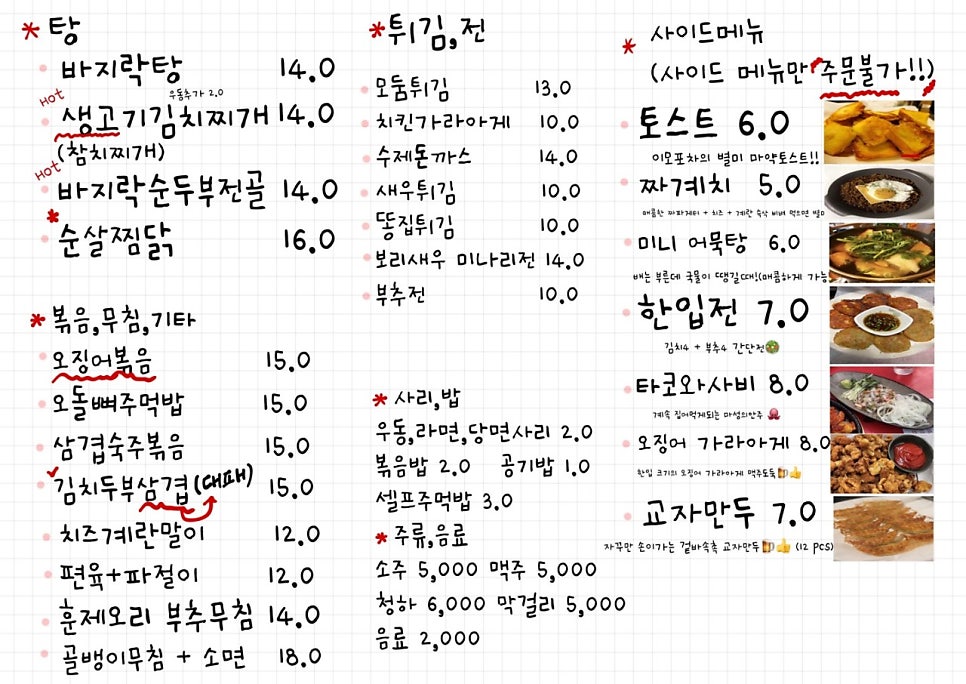 * 탕
바지락탕 14.0
우동추가 2.0
Hot
생고기김치찌개 14.0
(참치찌개)
Hot
바지락순두부전골 14.0
* 순살찜닭 16.0
* 볶음,무침,기타
오징어볶음 15.0
오돌뼈주먹밥 15.0
삼겹숙주볶음 15.0
김치두부삼겹(대패) 15.0
치즈계란말이 12.0
편육+파절이 12.0
훈제오리 부추무침 14.0
골뱅이무침 + 소면 18.0
* 튀김,전
모둠튀김 13.0
치킨가라아게 10.0
수제돈까스 14.0
새우튀김 10.0
똥집튀김 10.0
보리새우 미나리전 14.0
부추전 10.0
* 사리,밥
우동,라면,당면사리 2.0
볶음밥 2.0 공기밥 1.0
셀프주먹밥 3.0
* 주류,음료
소주 5,000 맥주 5,000
청하 6,000 막걸리 5,000
음료 2,000
* 사이드메뉴
(사이드 메뉴만 주문불가!!)
토스트 6.0
이모포차의 별미 마약토스트!!
짜계치 5.0
매콤한 짜파게티 + 치즈 + 계란 슥삭 비벼 먹으면 별미
미니 어묵탕 6.0
배는 부른데 국물이 땡길때!(매콤하게 가능
한입전 7.0
김치4 + 부추4 간단전
타코와사비 8.0
계속 집어먹게되는 마성의안주 🐙
오징어 가라아게 8.0
한입 크기의 오징어 가라아게 맥주도둑🍺👍
교자만두 7.0
자꾸만 손이가는 겉바속촉 교자만두🍺👍 (12 pcs)